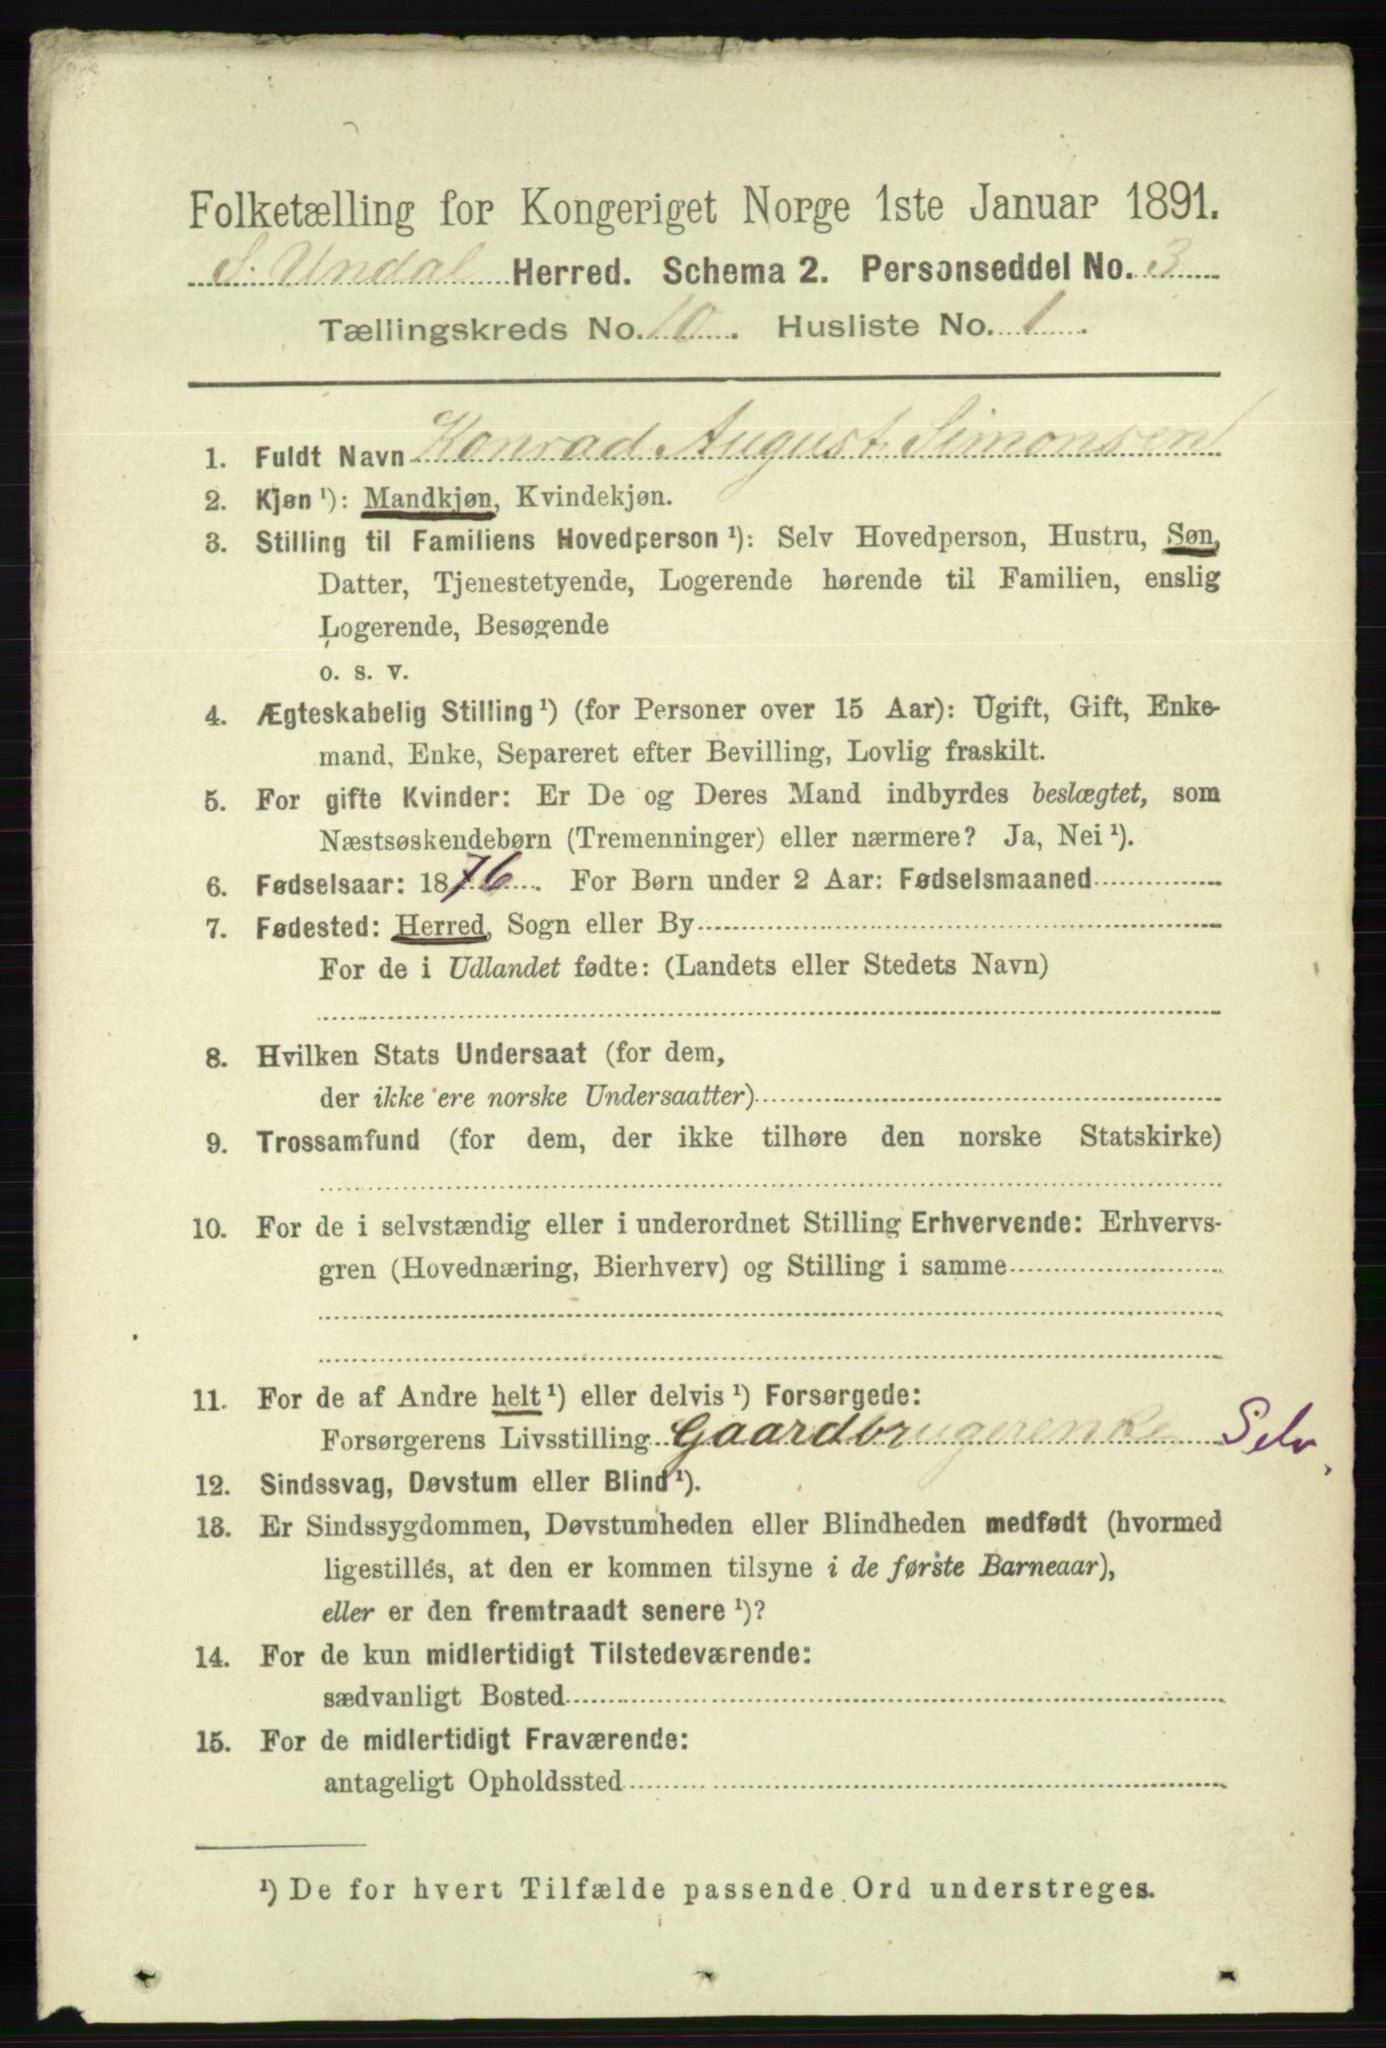 Folketælling for Kongeriget Norge 1ste Januar 1891.
S. Undal Herred. Schema 2. Personseddel No. 3
Tællingskreds No. 10. Husliste No. 1.
1. Fuldt Navn Konrad August Simonsen
2. Kjøn ¹): Mandkjøn, Kvindekjøn.
3. Stilling til Familiens Hovedperson ¹): Selv Hovedperson, Hustru, Søn,
Datter, Tjenestetyende, Logerende hørende til Familien, enslig
Logerende, Besøgende
o. s. v.
4. Ægteskabelig Stilling ¹) (for Personer over 15 Aar): Ugift, Gift, Enke-
mand, Enke, Separeret efter Bevilling, Lovlig fraskilt.
5. For gifte Kvinder: Er De og Deres Mand indbyrdes beslægtet, som
Næstsøskendebørn (Tremenninger) eller nærmere? Ja, Nei ¹).
6. Fødselsaar: 1876. For Børn under 2 Aar: Fødselsmaaned
7. Fødested: Herred, Sogn eller By
For de i Udlandet fødte: (Landets eller Stedets Navn)
8. Hvilken Stats Undersaat (for dem,
der ikke ere norske Undersaatter)
9. Trossamfund (for dem, der ikke tilhøre den norske Statskirke)
10. For de i selvstændig eller i underordnet Stilling Erhvervende: Erhvervs-
gren (Hovednæring, Bierhverv) og Stilling i samme
11. For de af Andre helt ¹) eller delvis ¹) Forsørgede:
Forsørgerens Livsstilling Gaardbrugerenke Selv
12. Sindssvag, Døvstum eller Blind ¹).
13. Er Sindssygdommen, Døvstumheden eller Blindheden medfødt (hvormed
ligestilles, at den er kommen tilsyne i de første Barneaar),
eller er den fremtraadt senere ¹)?
14. For de kun midlertidigt Tilstedeværende:
sædvanligt Bosted
15. For de midlertidigt Fraværende:
antageligt Opholdssted
¹) De for hvert Tilfælde passende Ord understreges.